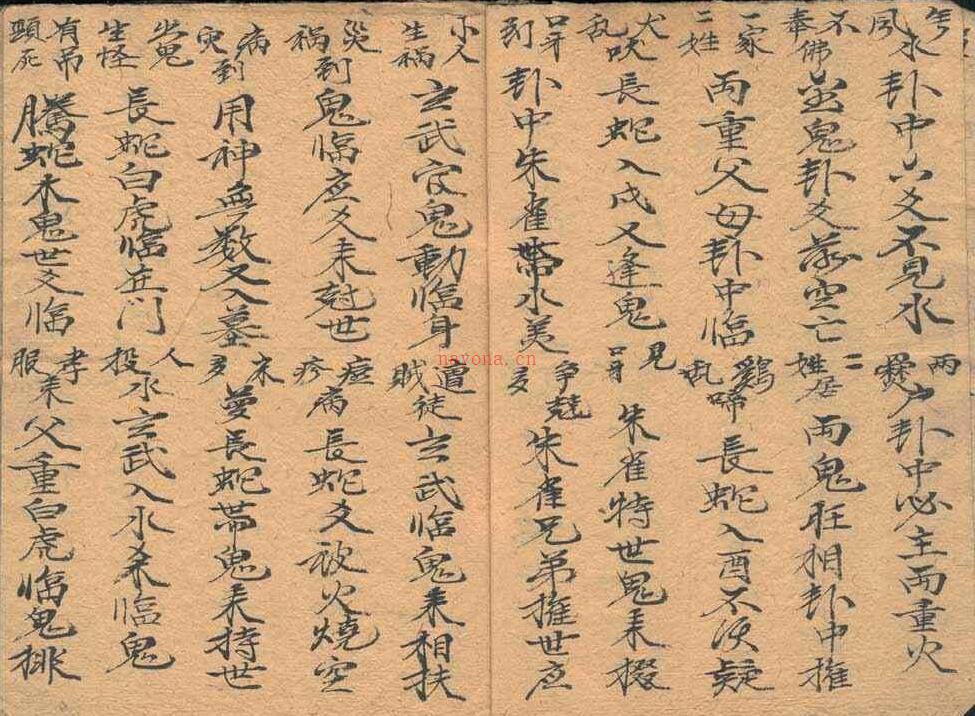 風水
卦中六爻不見水
兩爨户
卦中必主兩重火
不奉佛
並鬼卦爻落空亡
二姓居
兩鬼旺相卦中擁
一家二姓
両重父母卦中臨
鷄乱啼
長蛇入酉不須疑
犬乱吠
長蛇入戌又逢鬼
見口舌
朱雀特世鬼耒掇
口舌到
卦中朱雀帶水美
爭競多
朱雀兄弟擁世应
小人生禍
玄武官鬼動臨身
遭賊徒
玄武臨鬼耒相扶
災禍到
鬼臨应爻耒尅世
痘疹病
長蛇爻被火燒空
病灾到
用神無数又入墓
夢長蛇帶鬼耒持世
出鬼生怪
長蛇白虎臨在門
人投水
玄武入水来臨鬼
有吊頸死
騰蛇木鬼世爻臨
孝服耒
父重白虎臨鬼排
nayona.cn